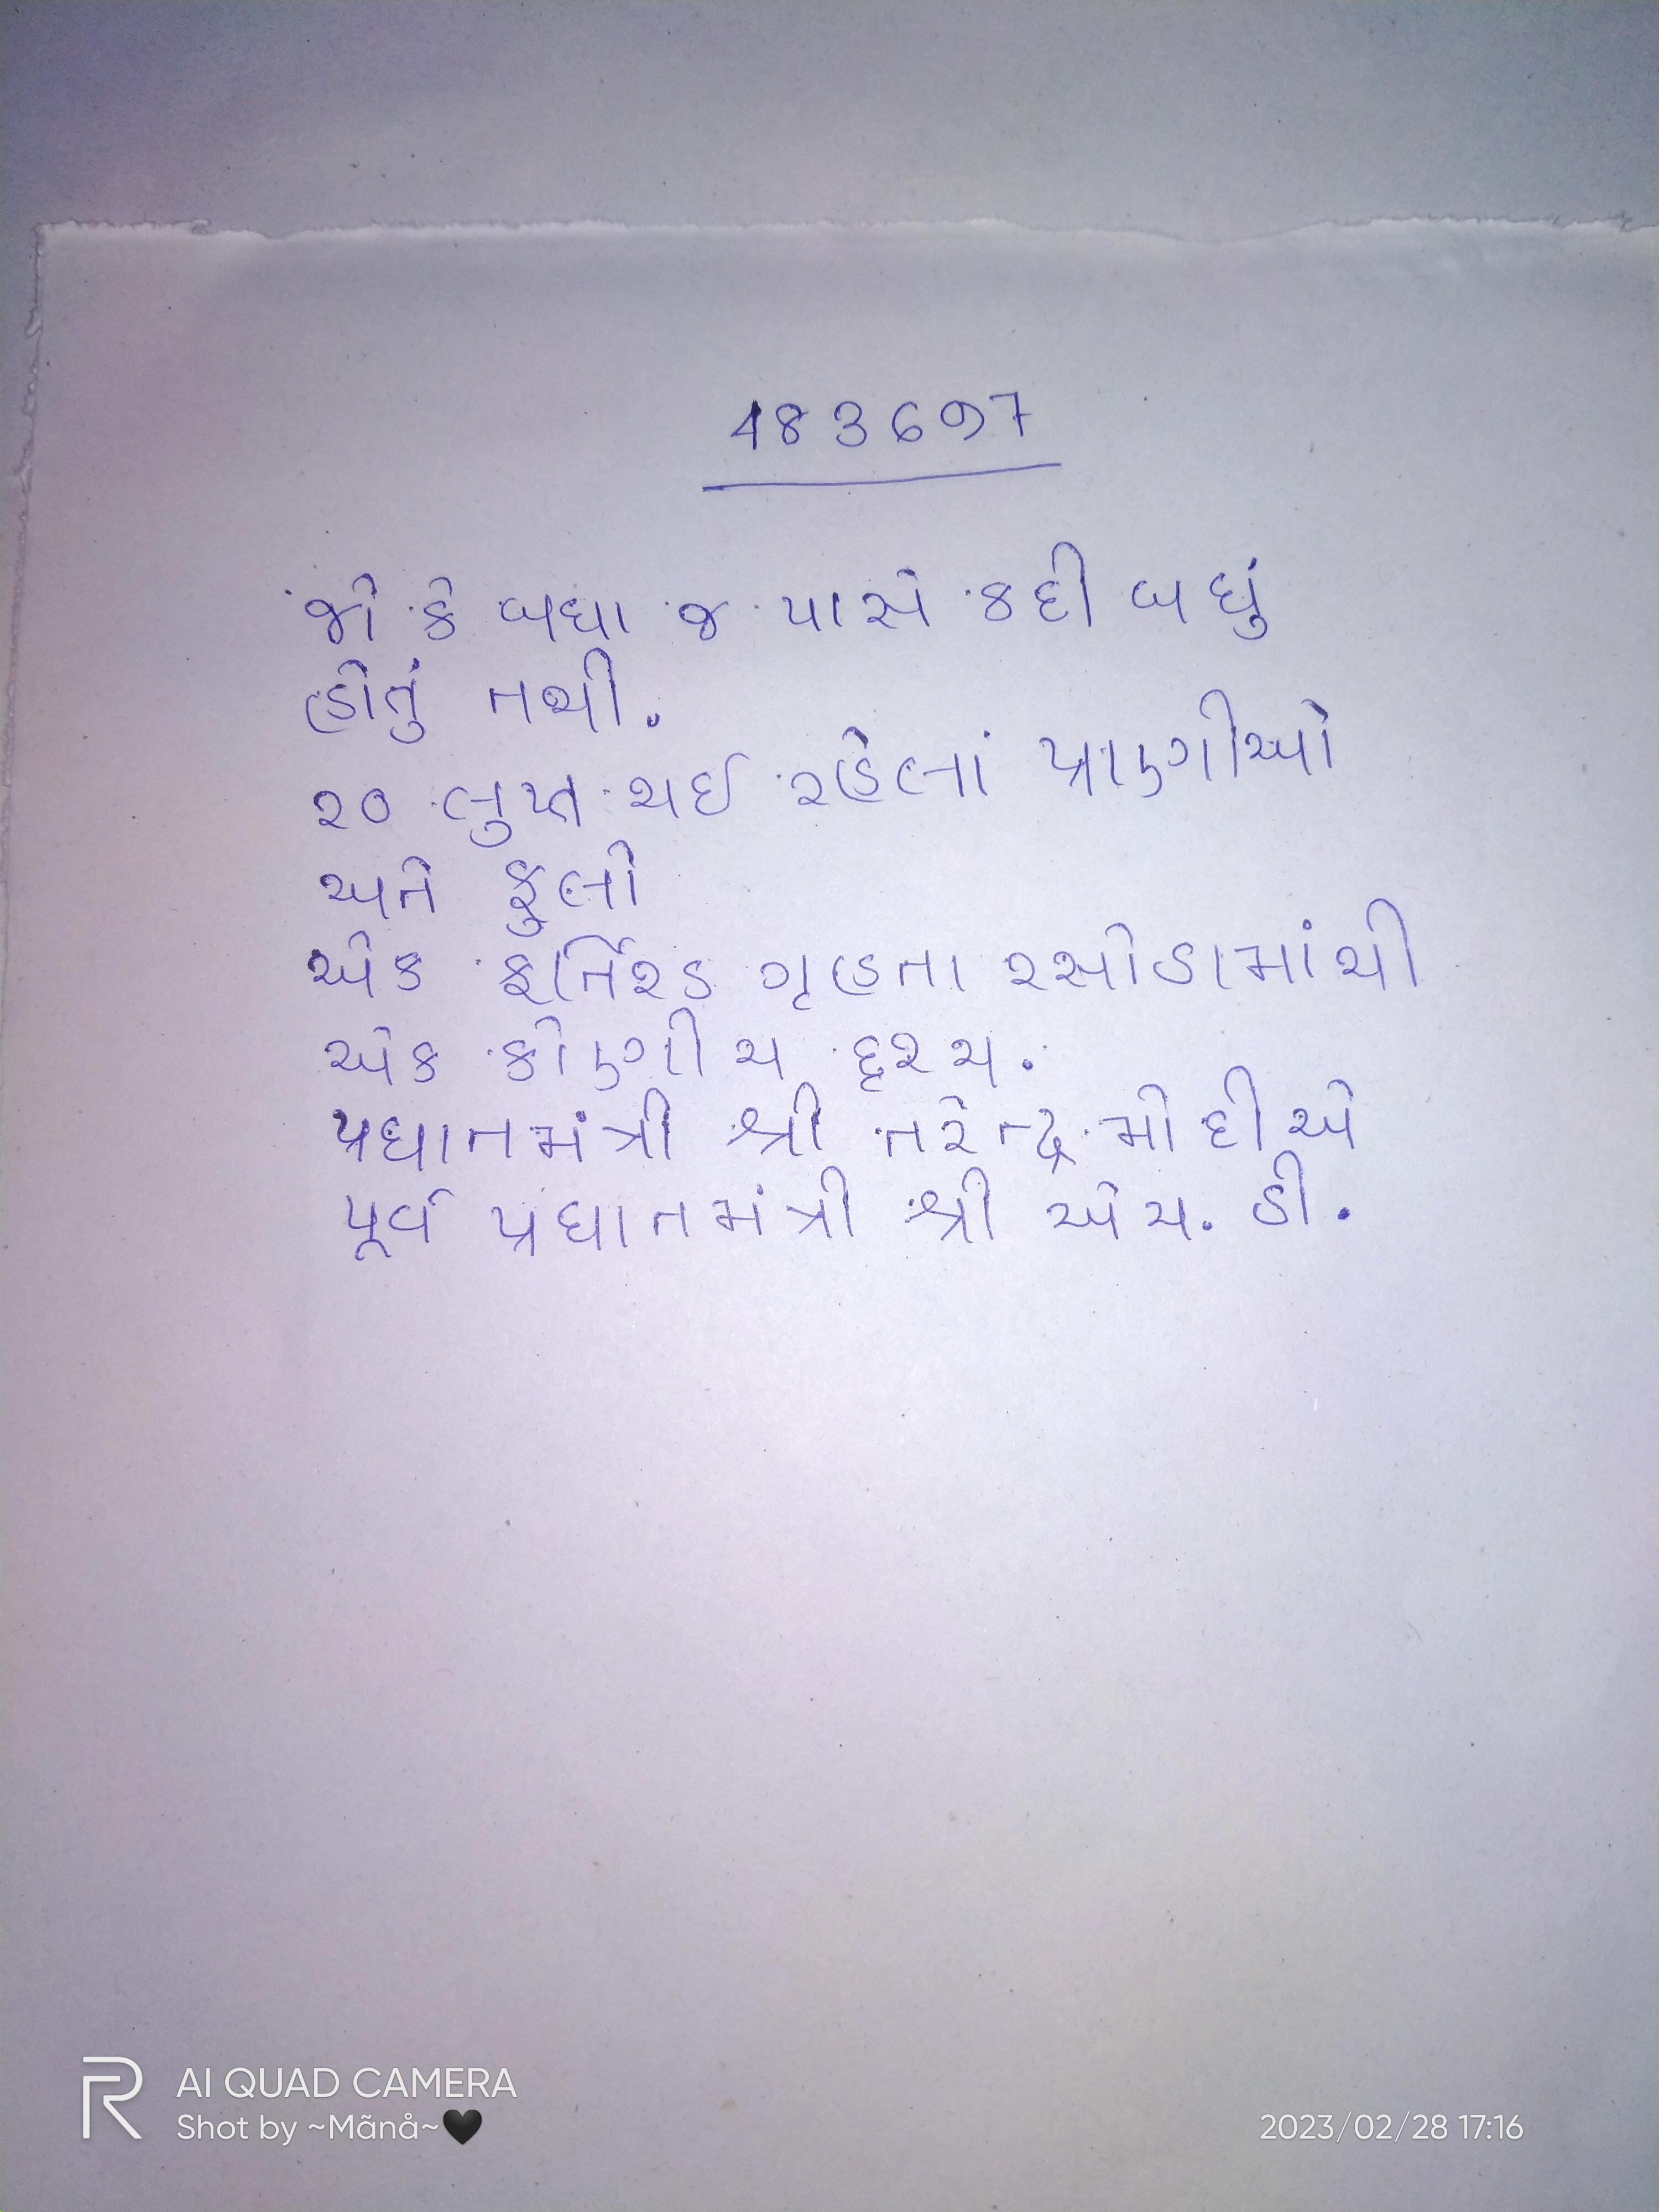 183697
જો કે બધા જ પાસે કદી બધું
હોતું નથી.
૨૦ લુપ્ત થઈ રહેલાં પ્રાણીઓ
અને ફુલો
એક ફર્નિશ્ડ ગૃહના રસોડામાંથી
એક કોણીય દૃશ્ય.
પ્રધાનમંત્રી શ્રી નરેન્દ્ર મોદીએ
પૂર્વ પ્રધાનમંત્રી શ્રી એચ. ડી.
AI QUAD CAMERA
Shot by ~Mãnå~🖤
2023/02/28 17:16